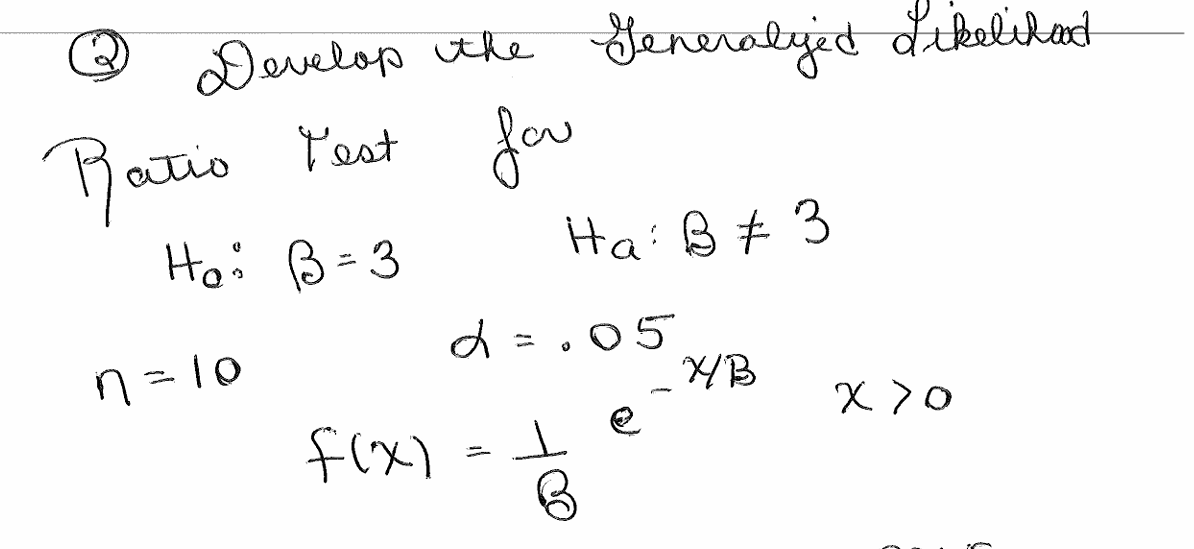 ② Develop the Generalized Likelihood
Ratio Test for
H₀: β = 3 Hₐ: β ≠ 3
n = 10 α = .05
f(x) = 1/β e^(-x/β) x > 0